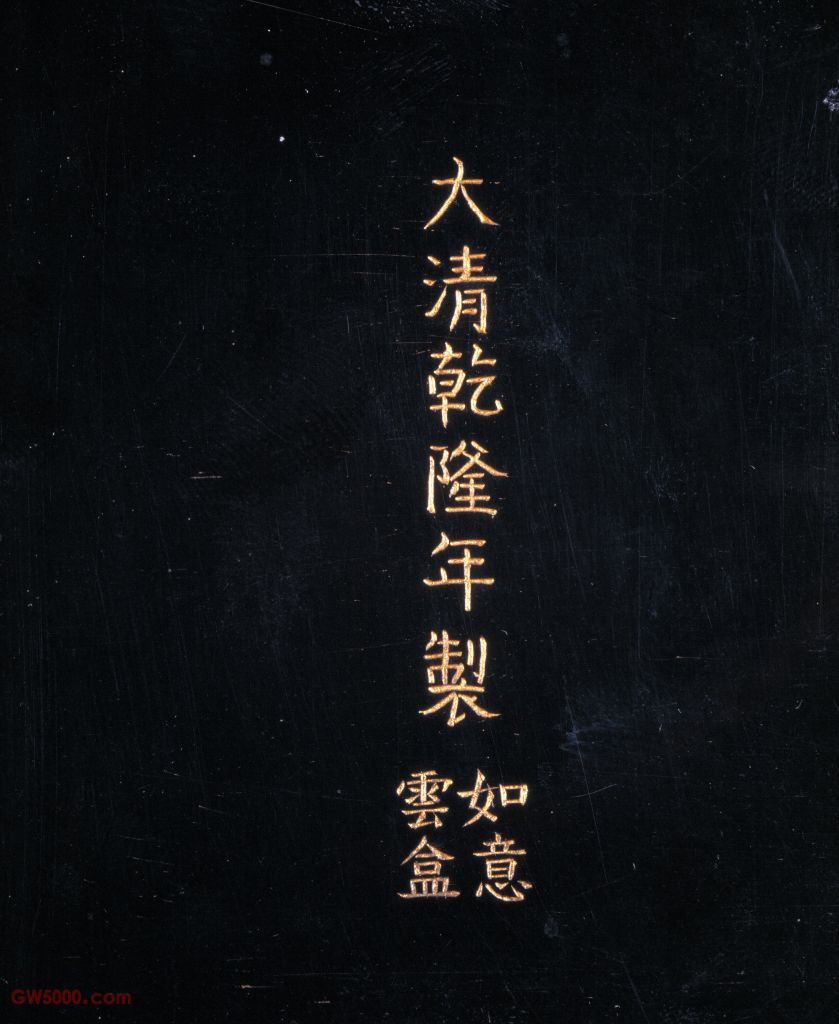 大清乾隆年製
如意
雲盒
GW5000.com